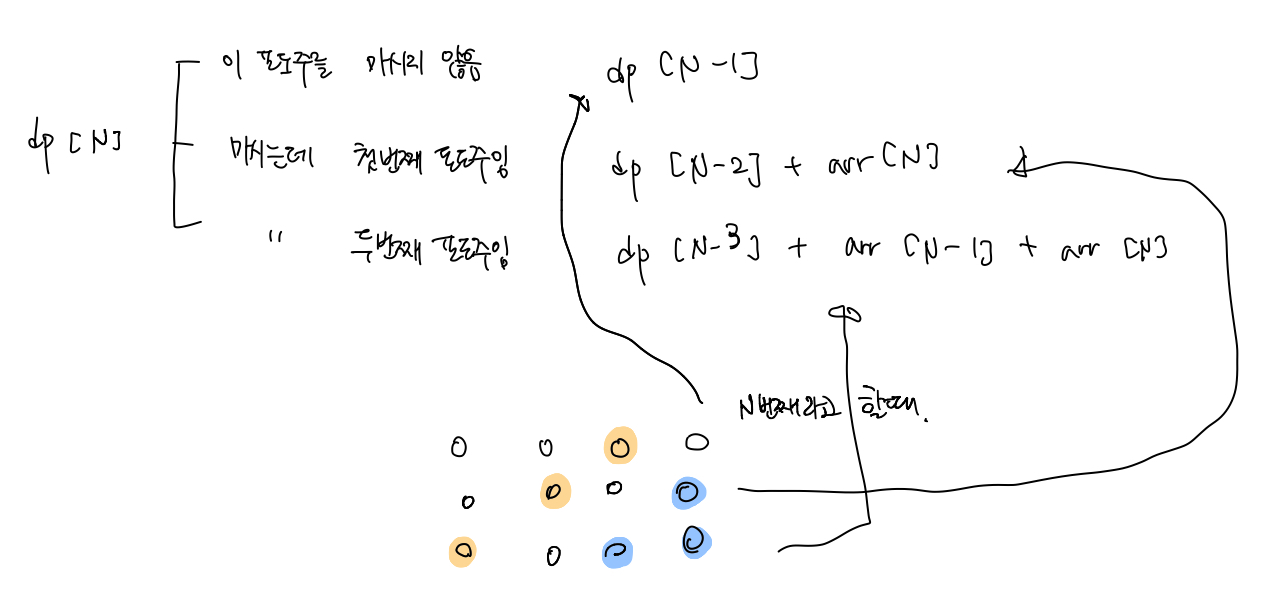 이 포도주를 마시지 않음 dp [N-1]
dp [N] 마시는데 첫번째 포도주임 dp [N-2] + arr [N]
" 두번째 포도주임 dp [N-3] + arr [N-1] + arr [N]
N번째라고 할때.